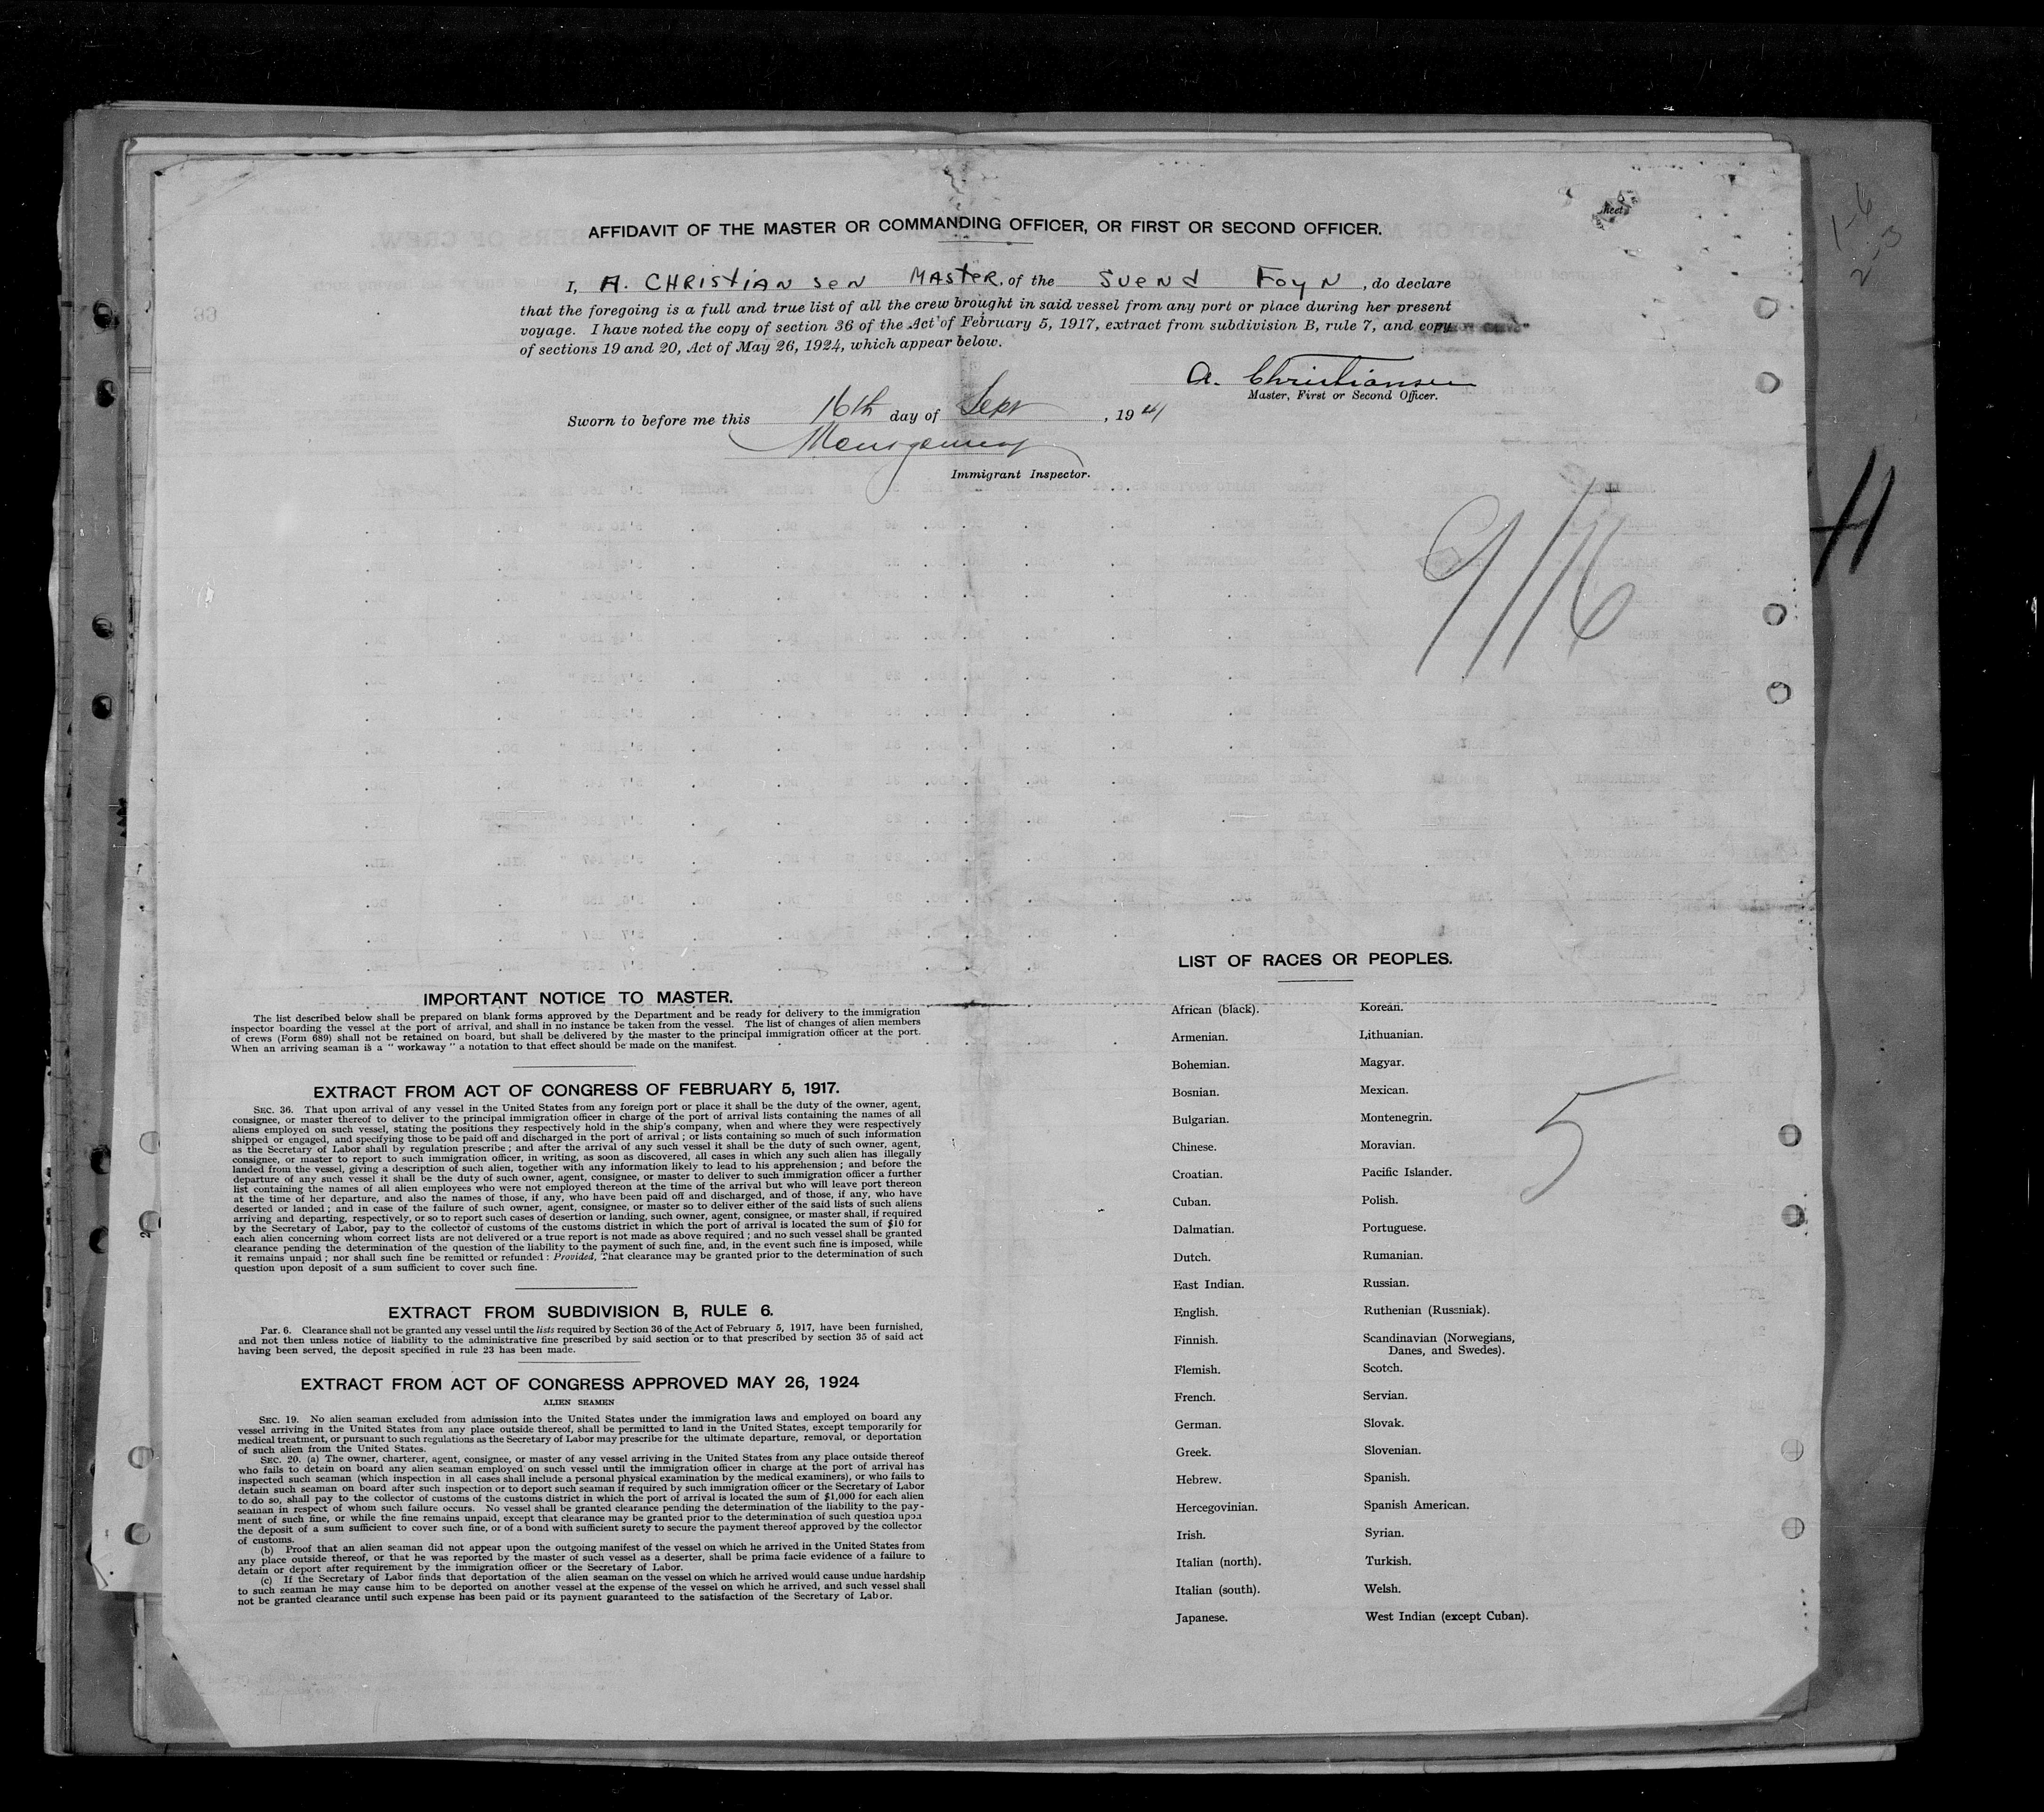 Sheet
AFFIDAVIT OF THE MASTER OR COMMANDING OFFICER, OR FIRST OR SECOND OFFICER.
I, A. CHRISTIANSEN MASTER, of the SVEND FOYN, do declare
that the foregoing is a full and true list of all the crew brought in said vessel from any port or place during her present
voyage. I have noted the copy of section 36 of the Act of February 5, 1917, extract from subdivision B, rule 7, and copy
of sections 19 and 20, Act of May 26, 1924, which appear below.
A. Christiansen
Master, First or Second Officer.
Sworn to before me this 16th day of Sept, 1941
Montgomery
Immigrant Inspector.
1-6
2-3
9/16
H
IMPORTANT NOTICE TO MASTER.
The list described below shall be prepared on blank forms approved by the Department and be ready for delivery to the immigration
inspector boarding the vessel at the port of arrival, and shall in no instance be taken from the vessel. The list of changes of alien members
of crews (Form 689) shall not be retained on board, but shall be delivered by the master to the principal immigration officer at the port.
When an arriving seaman is a " workaway " a notation to that effect should be made on the manifest.
EXTRACT FROM ACT OF CONGRESS OF FEBRUARY 5, 1917.
SEC. 36. That upon arrival of any vessel in the United States from any foreign port or place it shall be the duty of the owner, agent,
consignee, or master thereof to deliver to the principal immigration officer in charge of the port of arrival lists containing the names of all
aliens employed on such vessel, stating the positions they respectively hold in the ship's company, when and where they were respectively
shipped or engaged, and specifying those to be paid off and discharged in the port of arrival ; or lists containing so much of such information
as the Secretary of Labor shall by regulation prescribe ; and after the arrival of any such vessel it shall be the duty of such owner, agent,
consignee, or master to report to such immigration officer, in writing, as soon as discovered, all cases in which any such alien has illegally
landed from the vessel, giving a description of such alien, together with any information likely to lead to his apprehension ; and before the
departure of any such vessel it shall be the duty of such owner, agent, consignee, or master to deliver to such immigration officer a further
list containing the names of all alien employees who were not employed thereon at the time of the arrival but who will leave port thereon
at the time of her departure, and also the names of those, if any, who have been paid off and discharged, and of those, if any, who have
deserted or landed ; and in case of the failure of such owner, agent, consignee, or master so to deliver either of the said lists of such aliens
arriving and departing, respectively, or so to report such cases of desertion or landing, such owner, agent, consignee, or master shall, if required
by the Secretary of Labor, pay to the collector of customs of the customs district in which the port of arrival is located the sum of $10 for
each alien concerning whom correct lists are not delivered or a true report is not made as above required ; and no such vessel shall be granted
clearance pending the determination of the question of the liability to the payment of such fine, and, in the event such fine is imposed, while
it remains unpaid ; nor shall such fine be remitted or refunded : Provided, That clearance may be granted prior to the determination of such
question upon deposit of a sum sufficient to cover such fine.
EXTRACT FROM SUBDIVISION B, RULE 6.
Par. 6. Clearance shall not be granted any vessel until the lists required by Section 36 of the Act of February 5, 1917, have been furnished,
and not then unless notice of liability to the administrative fine prescribed by said section or to that prescribed by section 35 of said act
having been served, the deposit specified in rule 23 has been made.
EXTRACT FROM ACT OF CONGRESS APPROVED MAY 26, 1924
ALIEN SEAMEN
SEC. 19. No alien seaman excluded from admission into the United States under the immigration laws and employed on board any
vessel arriving in the United States from any place outside thereof, shall be permitted to land in the United States, except temporarily for
medical treatment, or pursuant to such regulations as the Secretary of Labor may prescribe for the ultimate departure, removal, or deportation
of such alien from the United States.
SEC. 20. (a) The owner, charterer, agent, consignee, or master of any vessel arriving in the United States from any place outside thereof
who fails to detain on board any alien seaman employed on such vessel until the immigration officer in charge at the port of arrival has
inspected such seaman (which inspection in all cases shall include a personal physical examination by the medical examiners), or who fails to
detain such seaman on board after such inspection or to deport such seaman if required by such immigration officer or the Secretary of Labor
to do so, shall pay to the collector of customs of the customs district in which the port of arrival is located the sum of $1,000 for each alien
seaman in respect of whom such failure occurs. No vessel shall be granted clearance pending the determination of the liability to the pay-
ment of such fine, or while the fine remains unpaid, except that clearance may be granted prior to the determination of such question upon
the deposit of a sum sufficient to cover such fine, or of a bond with sufficient surety to secure the payment thereof approved by the collector
of customs.
(b) Proof that an alien seaman did not appear upon the outgoing manifest of the vessel on which he arrived in the United States from
any place outside thereof, or that he was reported by the master of such vessel as a deserter, shall be prima facie evidence of a failure to
detain or deport after requirement by the immigration officer or the Secretary of Labor.
(c) If the Secretary of Labor finds that deportation of the alien seaman on the vessel on which he arrived would cause undue hardship
to such seaman he may cause him to be deported on another vessel at the expense of the vessel on which he arrived, and such vessel shall
not be granted clearance until such expense has been paid or its payment guaranteed to the satisfaction of the Secretary of Labor.
LIST OF RACES OR PEOPLES.
African (black).
Armenian.
Bohemian.
Bosnian.
Bulgarian.
Chinese.
Croatian.
Cuban.
Dalmatian.
Dutch.
East Indian.
English.
Finnish.
Flemish.
French.
German.
Greek.
Hebrew.
Hercegovinian.
Irish.
Italian (north).
Italian (south).
Japanese.
Korean.
Lithuanian.
Magyar.
Mexican.
Montenegrin.
Moravian.
Pacific Islander.
Polish.
Portuguese.
Rumanian.
Russian.
Ruthenian (Russniak).
Scandinavian (Norwegians,
Danes, and Swedes).
Scotch.
Servian.
Slovak.
Slovenian.
Spanish.
Spanish American.
Syrian.
Turkish.
Welsh.
West Indian (except Cuban).
5